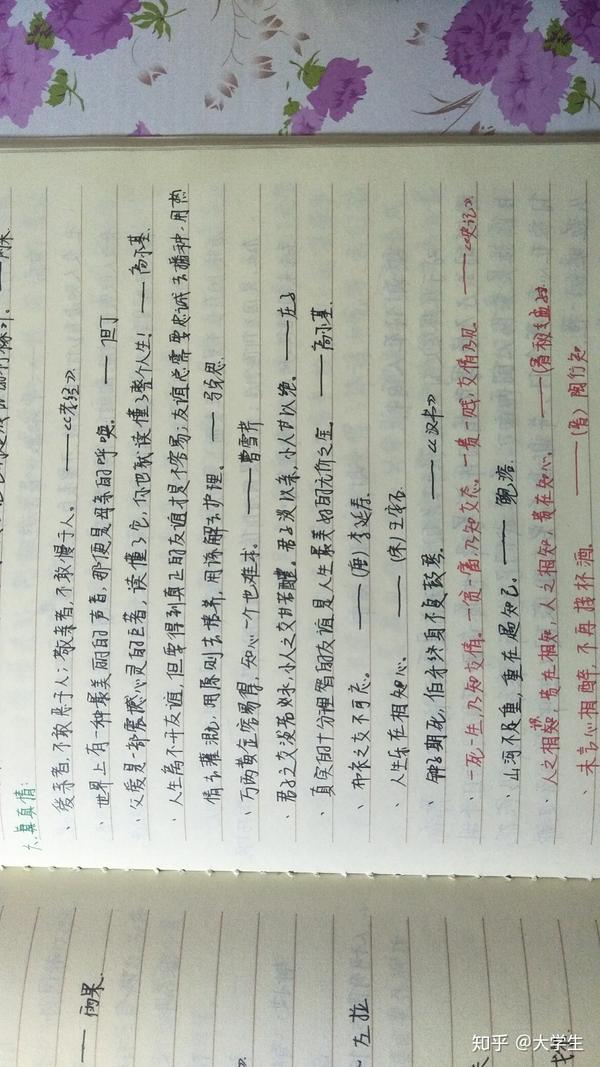 六.真真情:
· 爱亲者,不敢恶于人;敬亲者,不敢慢于人。——《孝经》
· 世界上有一种最美丽的声音,那便是母亲的呼唤。——但丁
· 父爱是一部震撼心灵的巨著,读懂了它,你也就读懂了整个人生!——高尔基
· 人生离不开友谊,但要得到真正的友谊才是不容易;友谊总需要忠诚去播种,用热
情去灌溉,用原则去培养,用谅解去护理。——马克思
· 万两黄金容易得,知心一个也难求。——曹雪芹
· 君子之交淡若水,小人之交甘若醴。君子淡以亲,小人甘以绝。——庄子
· 真实的十分理智的友谊是人生最美好的无价之宝。——高尔基
· 布衣之交不可忘。——(唐)李延寿
· 人生乐在相知心。——(宋)王安石
· 钟子期死,伯牙终身不复鼓琴。——《汉书》
· 一死一生,乃知交情。一贫一富,乃知交态。一贵一贱,交情乃见。——《史记》
· 山河不足重,重在遇知己。——鲍溶
· 人之相知,贵在相知,人之相知,贵在知心。
· 未言心相醉,不再接杯酒。——(晋)陶行知
——雨果
左拉
知乎 @大学生